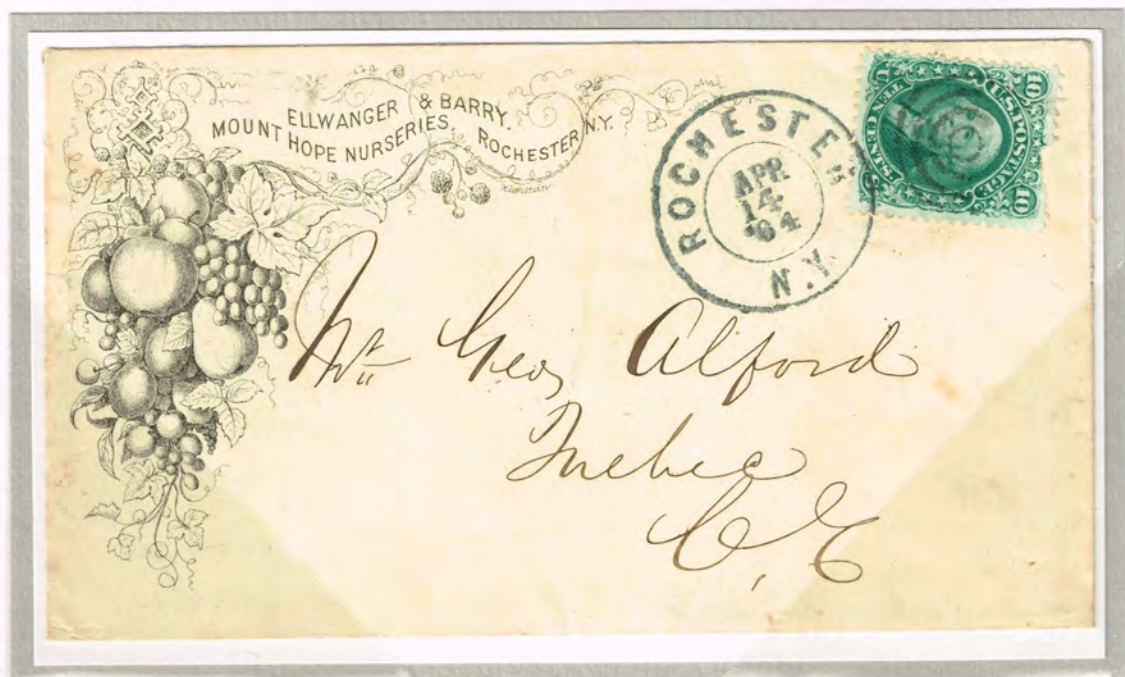 ELLWANGER & BARRY.
MOUNT HOPE NURSERIES, ROCHESTER N.Y.
ROCHESTER
N.Y.
APR
14
'64
U.S. POSTAGE
TEN CENTS
10
10
U
S
Mr Geo, Alford
Quebec
C, E